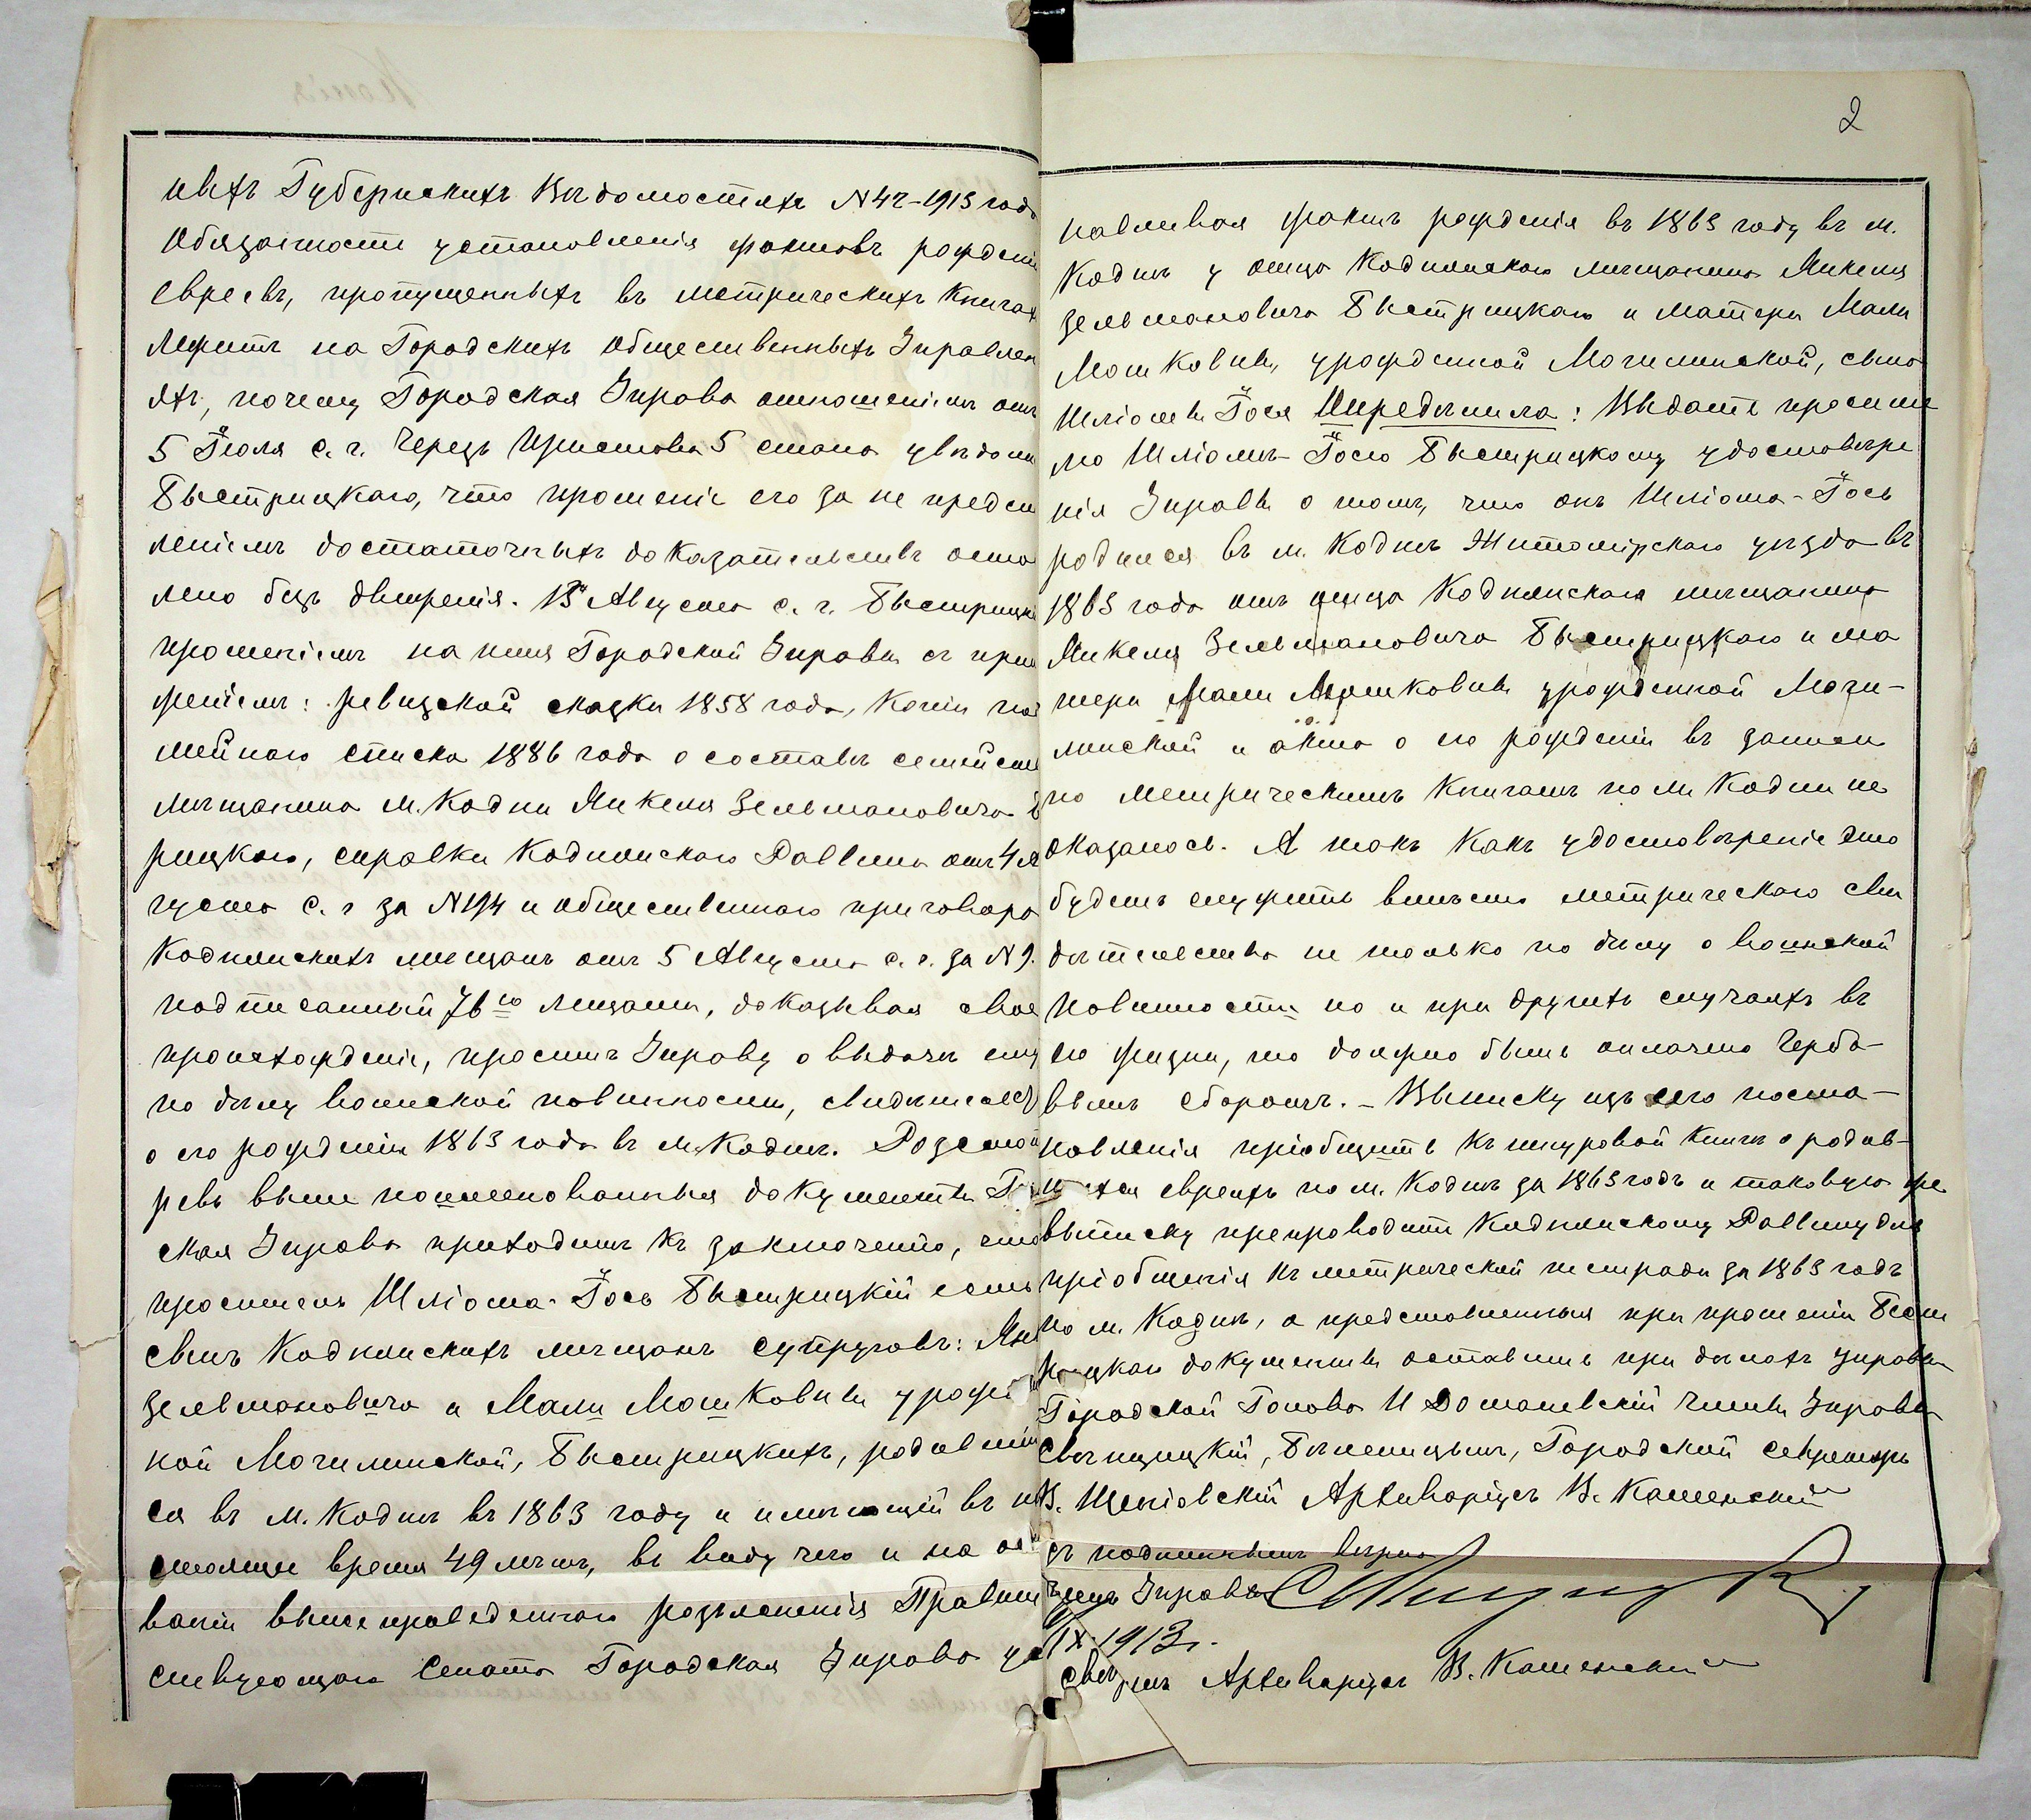 ныхъ Губернскихъ Вѣдомостяхъ N 42-1913 года
обязанности установленія фактовъ рожденія
евреевъ, пропущенныхъ въ метрическихъ книгах
лежитъ на Городскихъ Общественныхъ Управлен
яхъ, почему Городская Управа отношеніемъ отъ
5 Іюля с. г. черезъ Пристава 5 стана увѣдоми
Быстрицкаго, что прошеніе его за не предст
леніемъ достаточныхъ доказательствъ оста
лено безъ движенія. 13 Августа с. г. Быстрицкі
прошеніемъ на имя Городской Управы съ прил
женіемъ: ревизской сказки 1858 года, копіи по
мейнаго списка 1886 года о составѣ семейств
мѣщанина м. Кодни Янкеля Зельмановича
рицкаго, справки Коднянскаго Раввина отъ 4 А
густа с. г. за N 194 и общественнаго приговора
Коднянскихъ мѣщанъ отъ 5 Августа с. г. за N 9.
подписанный 76ю лицами, доказывая свое
происхожденіе, проситъ Управу о выдачѣ ему
по дѣлу воинской повинности, свидѣтельс
о его рожденіи 1863 года въ м. Коднѣ. Разсмот
рѣвъ выше поименованныя документы Го
ская Управа приходитъ къ заключенію, что
проситель Шліома-Іось Быстрицкій есть
сынъ Коднянскихъ мѣщанъ супруговъ: Янк
Зельмановича и Мали Мошковны урожд
ной Могилинской, Быстрицкихъ, родивший
ся въ м. Коднѣ въ 1863 году и имѣющій въ на
стоящее время 49 лѣтъ, въ виду чего и на ос
ваніи вышеприведеннаго разъясненія Правит
ствующаго Сената Городская Управа ус
2
навливая фактъ рожденія въ 1863 году въ м.
Коднѣ у отца Коднянскаго мѣщанина Янкеля
Зельмановича Быстрицкаго и матери Мали
Мошковны, урожденной Могилинской, сына
Шліомы Іося Опредѣлила: Выдать просите
лю Шліомѣ-Іосю Быстрицкому удостовѣре
нія Управы о томъ, что онъ Шліома-Іось
родился въ м. Коднѣ Житомірскаго уѣзда въ
1863 года отъ отца Коднянскаго мѣщанина
Янкеля Зельмановича Быстрицкаго и ма
тери Мали Мошковны урожденной Моги-
линской и акта о его рожденіи въ записи
по метрическимъ книгамъ по м. Кодни не
оказалось. А такъ какъ удостовѣреніе это
будетъ служить вмѣсто метрическаго сви
дѣтельства не только по дѣлу о воинской
повинности но и при другихъ случаяхъ въ
его жизни, то должно быть оплачено герба-
вымъ сборомъ. - Выписку изъ сего поста-
новленія пріобщить къ шнуровой книгѣ о родив-
шихся евреяхъ по м. Коднѣ за 1863 годъ и таковую же
выписку препроводить Коднянскому Раввину для
пріобщенія къ метрической тетради за 1863 годъ
по м. Коднѣ, а представленныя при прошеніи Быст
рицкаго документы оставить при дѣлахъ управы
Городской Голова И Доманевскій Члены Управы
Свенцицкій, Городской секретарь
В. Щеніовскій Архиваріусъ В. Каменскій
съ подлиннымъ вѣрно
Членъ Управы
IX 1913 г.
Свѣрялъ Архиваріусъ В. Каменскій